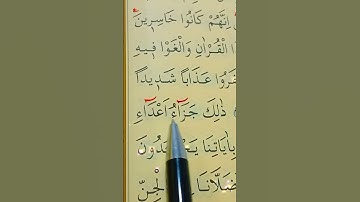 اِنَّهُمْ كَانُوا خَاسِرِينَ
ا الْقُرْاٰنِ وَالْغَوْا فِيهِ
فَرُوا عَذَاباً شَدِيداً
ذٰلِكَ جَزَٓاءُ اَعْدَٓاءِ
بِاٰيَاتِنَا يَجْحَدُونَ
ضَلَّانَا الْجِنِّ